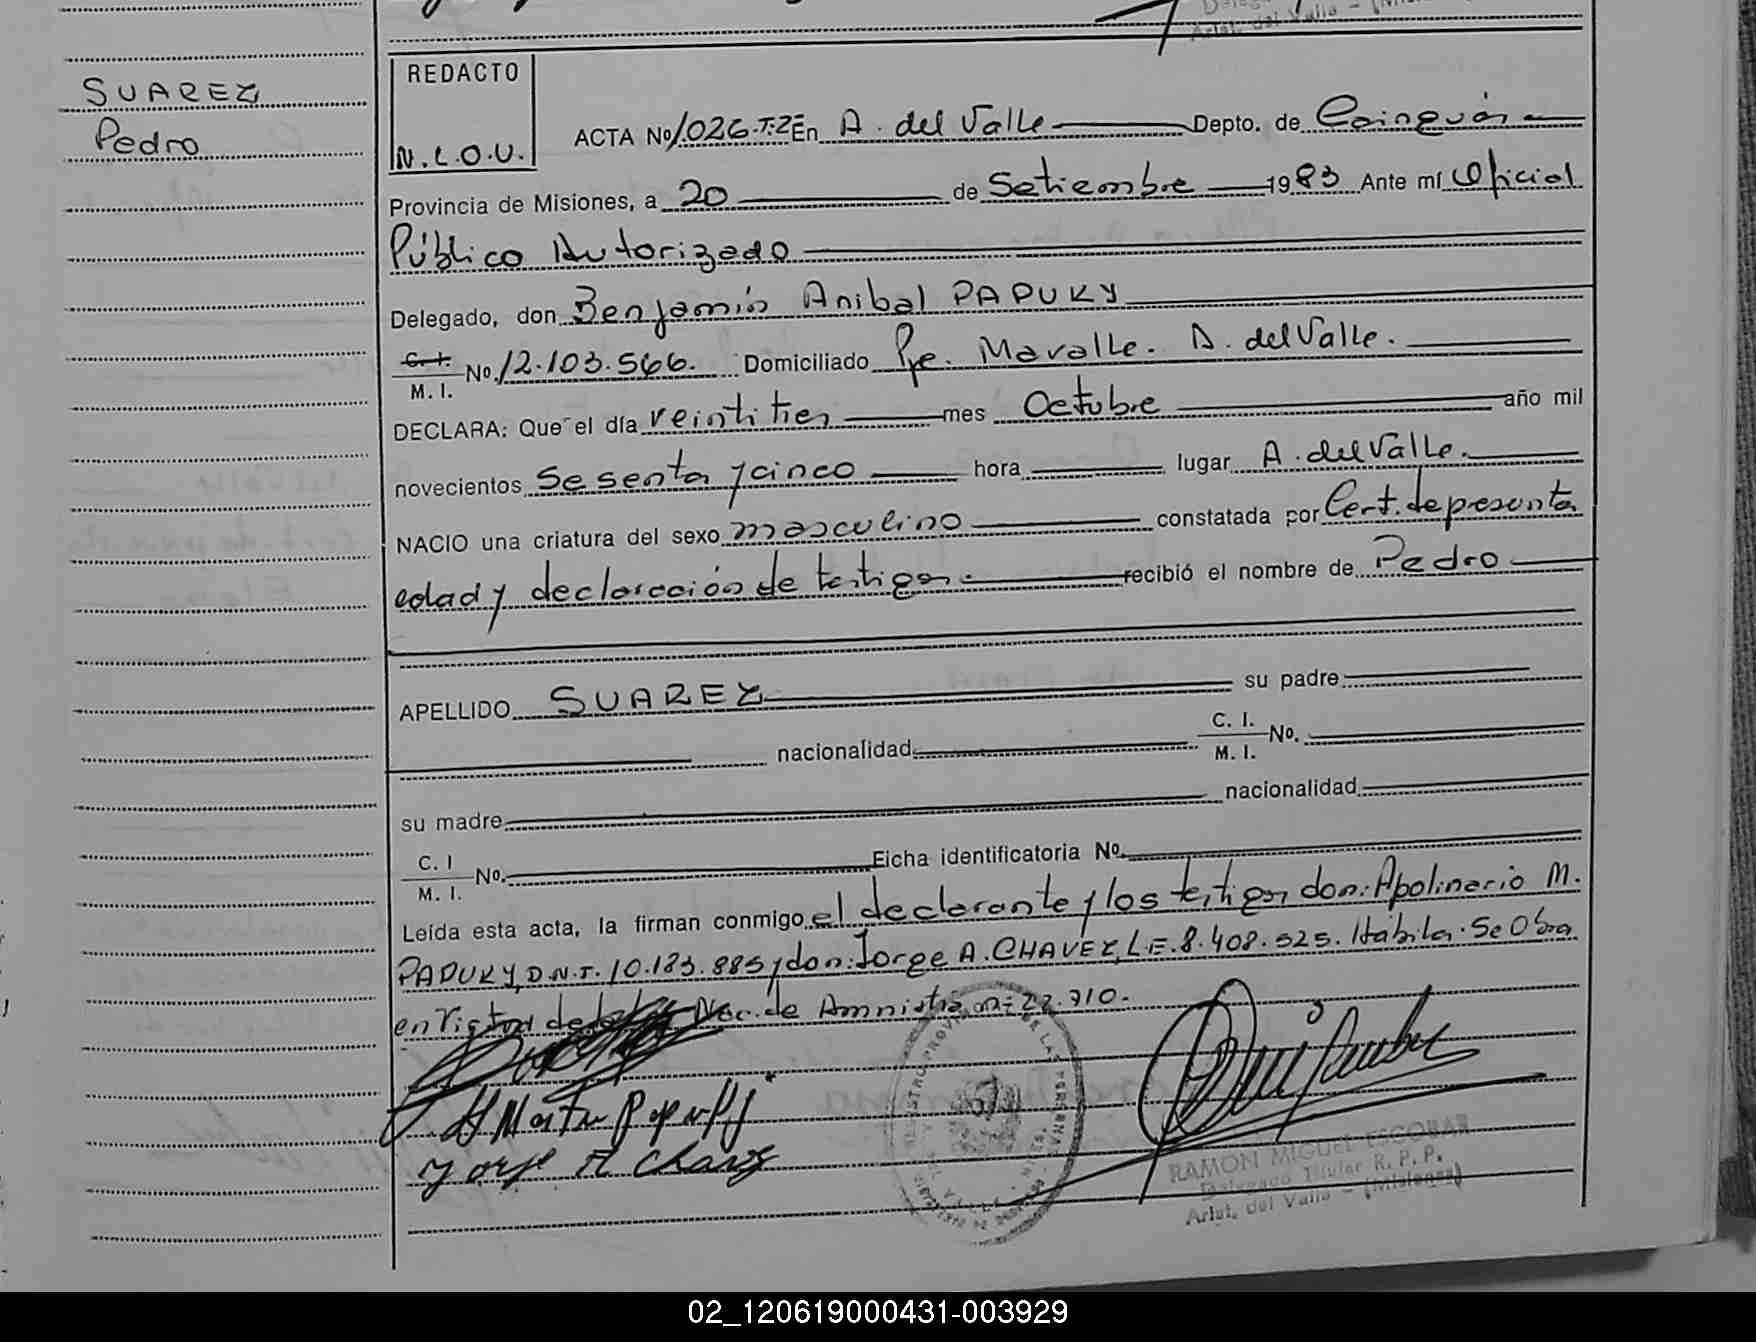 SUAREZ
Pedro
REDACTO
N.L.O.U.
ACTA Nº 1026-T:2º En A. del Valle Depto. de Cainguás
Provincia de Misiones, a 20 de Setiembre 1983 Ante mí Oficial
Público Autorizado
Delegado, don Benjamín Anibal PAPUKY
C. I.
M. I. No. 12.103.566. Domiciliado Pje. Mavalle. A. del Valle.
DECLARA: Que el día veintitres mes Octubre año mil
novecientos Sesenta y cinco hora lugar A. del Valle.
NACIO una criatura del sexo masculino constatada por Cert. de presunta
edad y declaración de testigos. recibió el nombre de Pedro
APELLIDO SUAREZ su padre
nacionalidad C. I. M. I. No.
su madre nacionalidad
C. I M. I. No. Ficha identificatoria No.
Leída esta acta, la firman conmigo el declarante y los testigos don: Apolinario M.
PAPUKY, D.N.I. 10.183.885 y don: Jorge A. CHAVEZ, L.E. 8.408.525. Hábiles. Se Obra
en Virtud de Nac. de Amnistía nº 22.710.
Jorge A Chavez
RAMON MIGUEL ESCOBAR
Delegado Titular R. P. P.
Arist. del Valle - (Misiones)
02_120619000431-003929